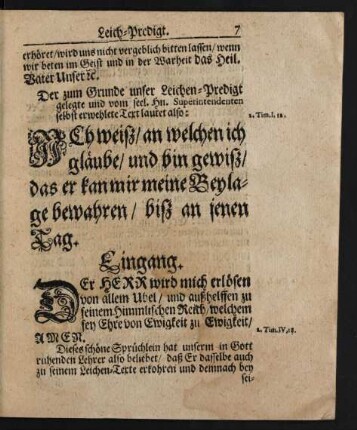 Leich-Predigt. 7
erhöret/ wird uns nicht vergeblich bitten lassen/ wenn
wir beten im Geist und in der Warheit das Heil.
Vater Unser ꝛc.
Der zum Grunde unser Leichen-Predigt
gelegte und vom seel. Hn. Superintendenten
selbst erwehlte Text lautet also:
2. Tim. I. 12.
ICh weiß/ an welchen ich
gläube/ und bin gewiß/
das er kan mir meine Beyla-
ge bewahren/ biß an jenen
Tag.
Eingang.
DEr HERR wird mich erlösen
von allem Ubel/ und außhelffen zu
seinem Himmlischen Reich/ welchem
sey Ehre von Ewigkeit zu Ewigkeit/
AMEN.
2. Tim. IV, 18.
Dieses schöne Sprüchlein hat unserm in Gott
ruhenden Lehrer also beliebet/ daß Er dasselbe auch
zu seinem Leichen-Texte erkohren und demnach bey
sei-